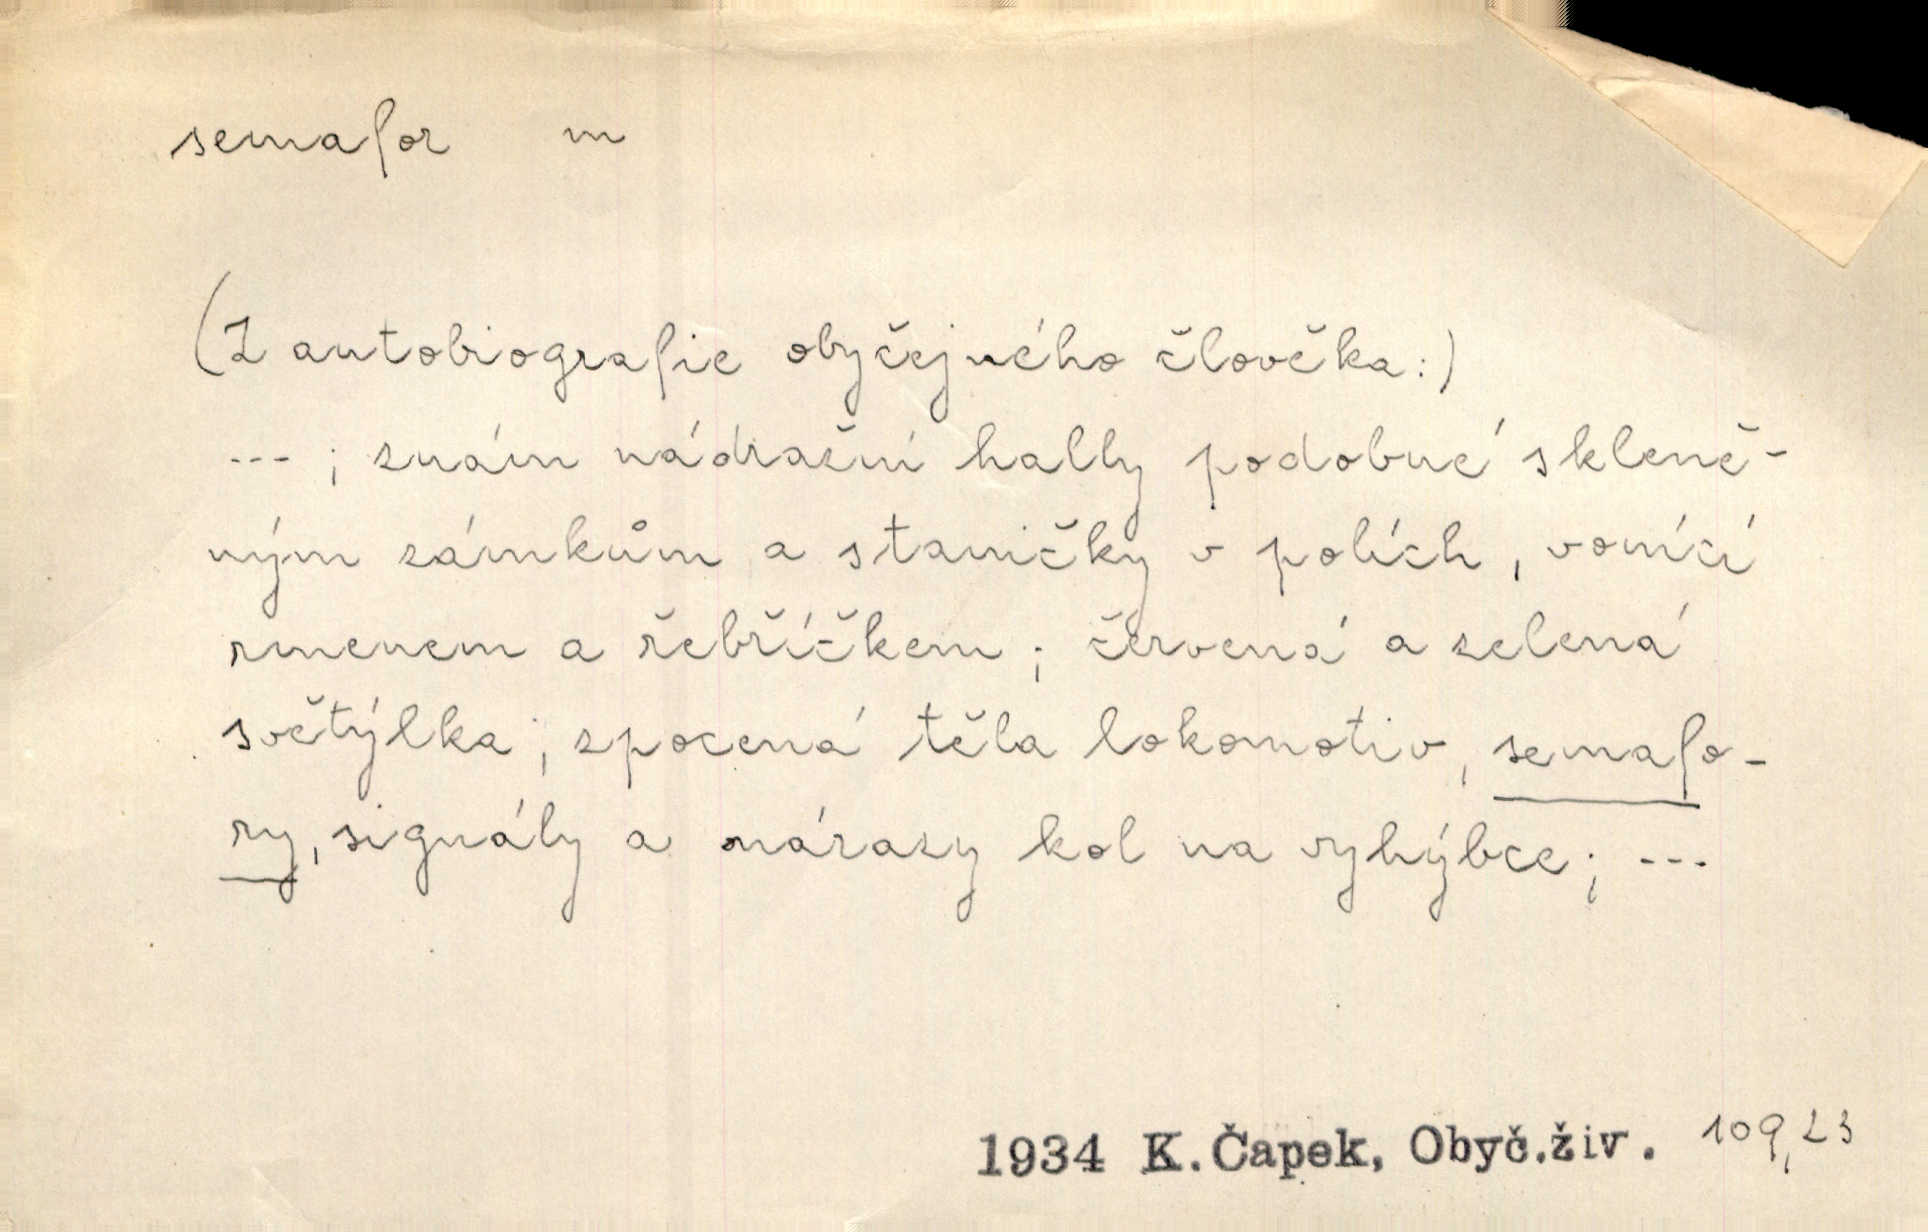 semafor m
(Z autobiografie obyčejného člověka:)
--- ; znám nádražní hally podobné skleně-
ným zámkům a staničky v polích, vonící
rmenem a řebříčkem; červená a zelená
světýlka; zpocená těla lokomotiv, semafo-
ry, signály a nárazy kol na vyhýbce; ---
1934 K. Čapek, Obyč.živ. 109,23